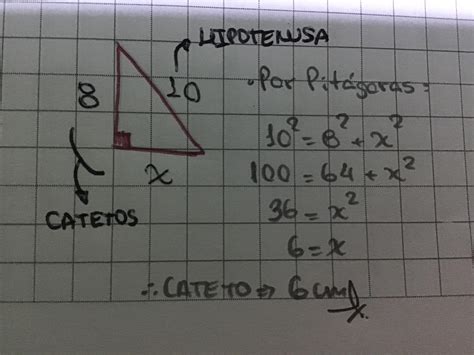 HIPOTENUSA
8
10
x
CATETOS
Por Pitágoras:
10² = 8² + x²
100 = 64 + x²
36 = x²
6 = x
∴ CATETO ⇒ 6 cm